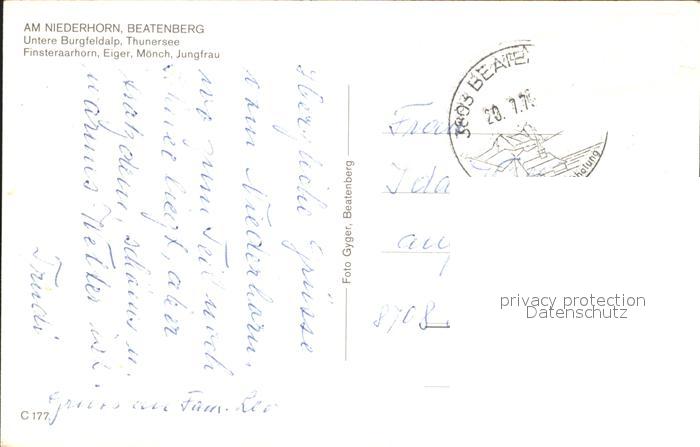 AM NIEDERHORN, BEATENBERG
Untere Burgfeldalp, Thunersee
Finsteraarhorn, Eiger, Mönch, Jungfrau
Herzliche Grüsse
vom Niederhorn,
wo zum Teil noch
Schnee liegt, aber
trotzdem schönes u.
warmes Wetter ist.
Trudi
Gruss an Fam. Leo
C 177.
Foto Gyger, Beatenberg
3803 BEATE
20. 7.7
holung
Frau
Ida
8708
privacy protection
Datenschutz